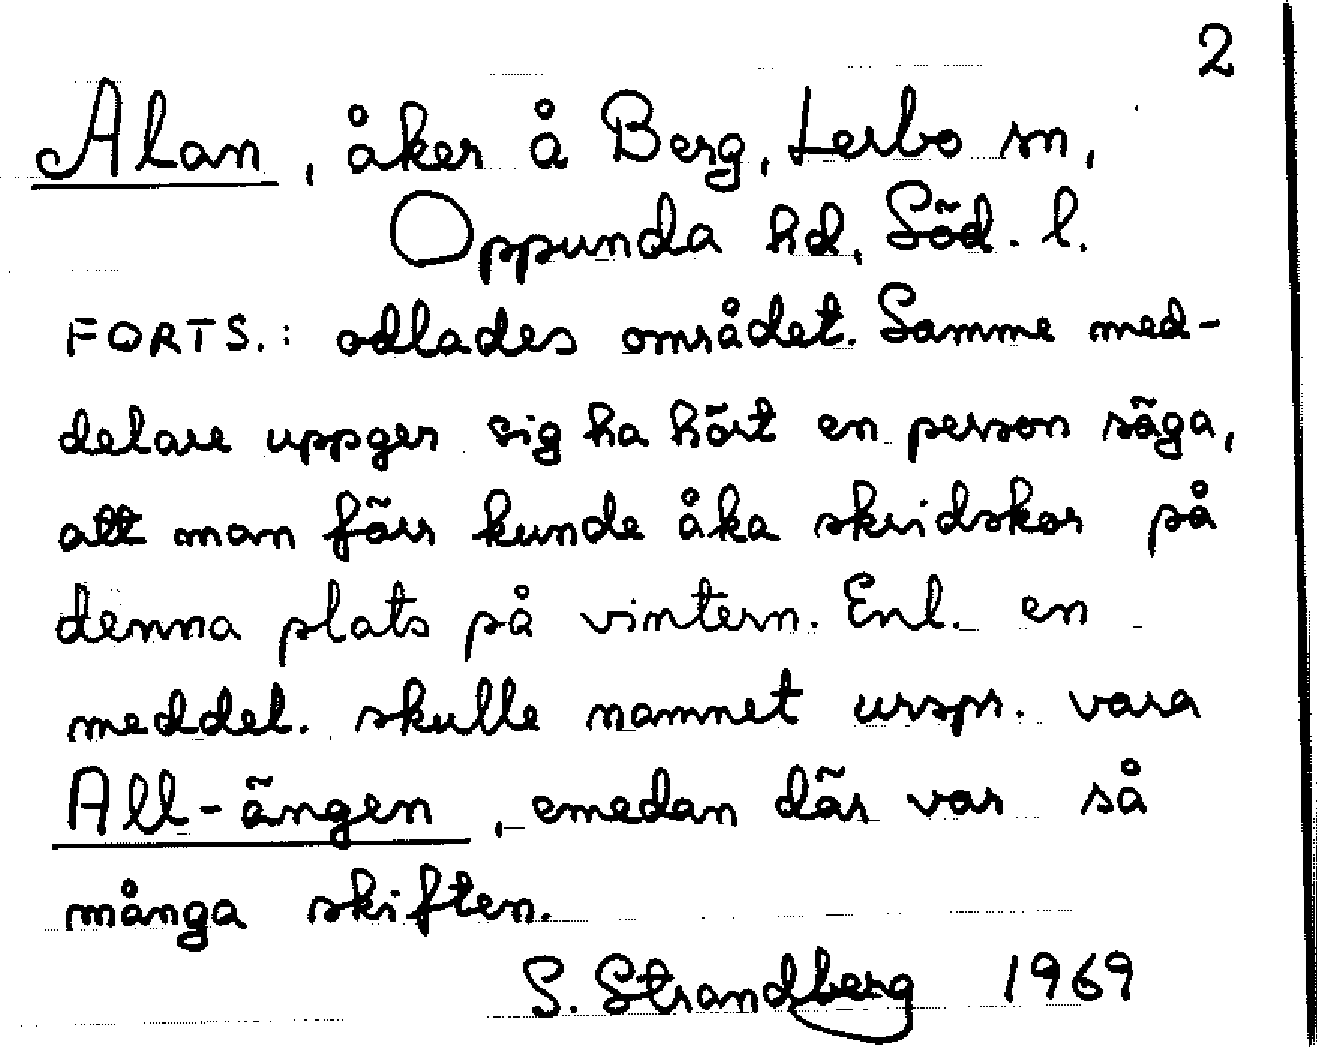 2
Alan, åker å Berg, Lerbo sn,
Oppunda hd, Söd. l.
FORTS.: odlades området. Samme med-
delare uppger sig ha hört en person säga,
att man förr kunde åka skridskor på
denna plats på vintern. Enl. en
meddel. skulle namnet urspr. vara
All-ängen, emedan där var så
många skiften.
S. Strandberg 1969